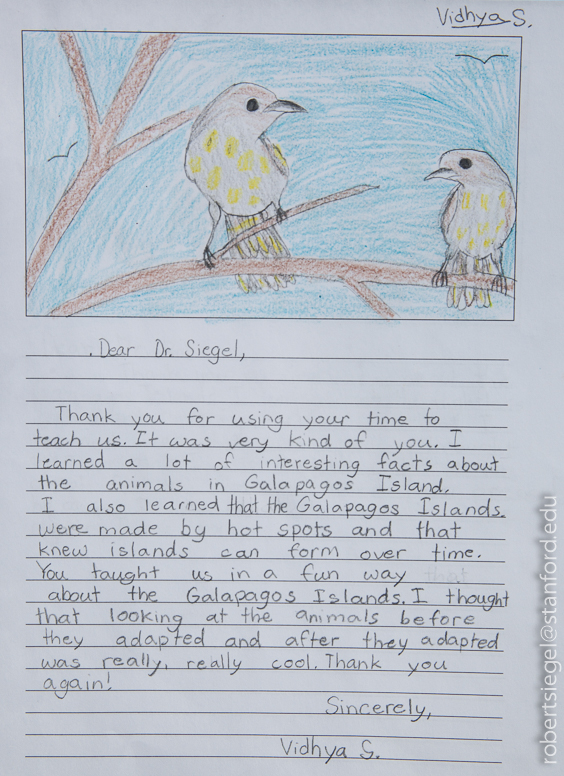 Vidhya S.
Dear Dr. Siegel,
Thank you for using your time to
teach us. It was very kind of you. I
learned a lot of interesting facts about
the animals in Galapagos Island.
I also learned that the Galapagos Islands.
were made by hot spots and that
knew islands can form over time.
You taught us in a fun way
about the Galapagos Islands. I thought
that looking at the animals before
they adapted and after they adapted
was really, really cool. Thank you
again!
Sincerely,
Vidhya S.
robertsiegel@stanford.edu